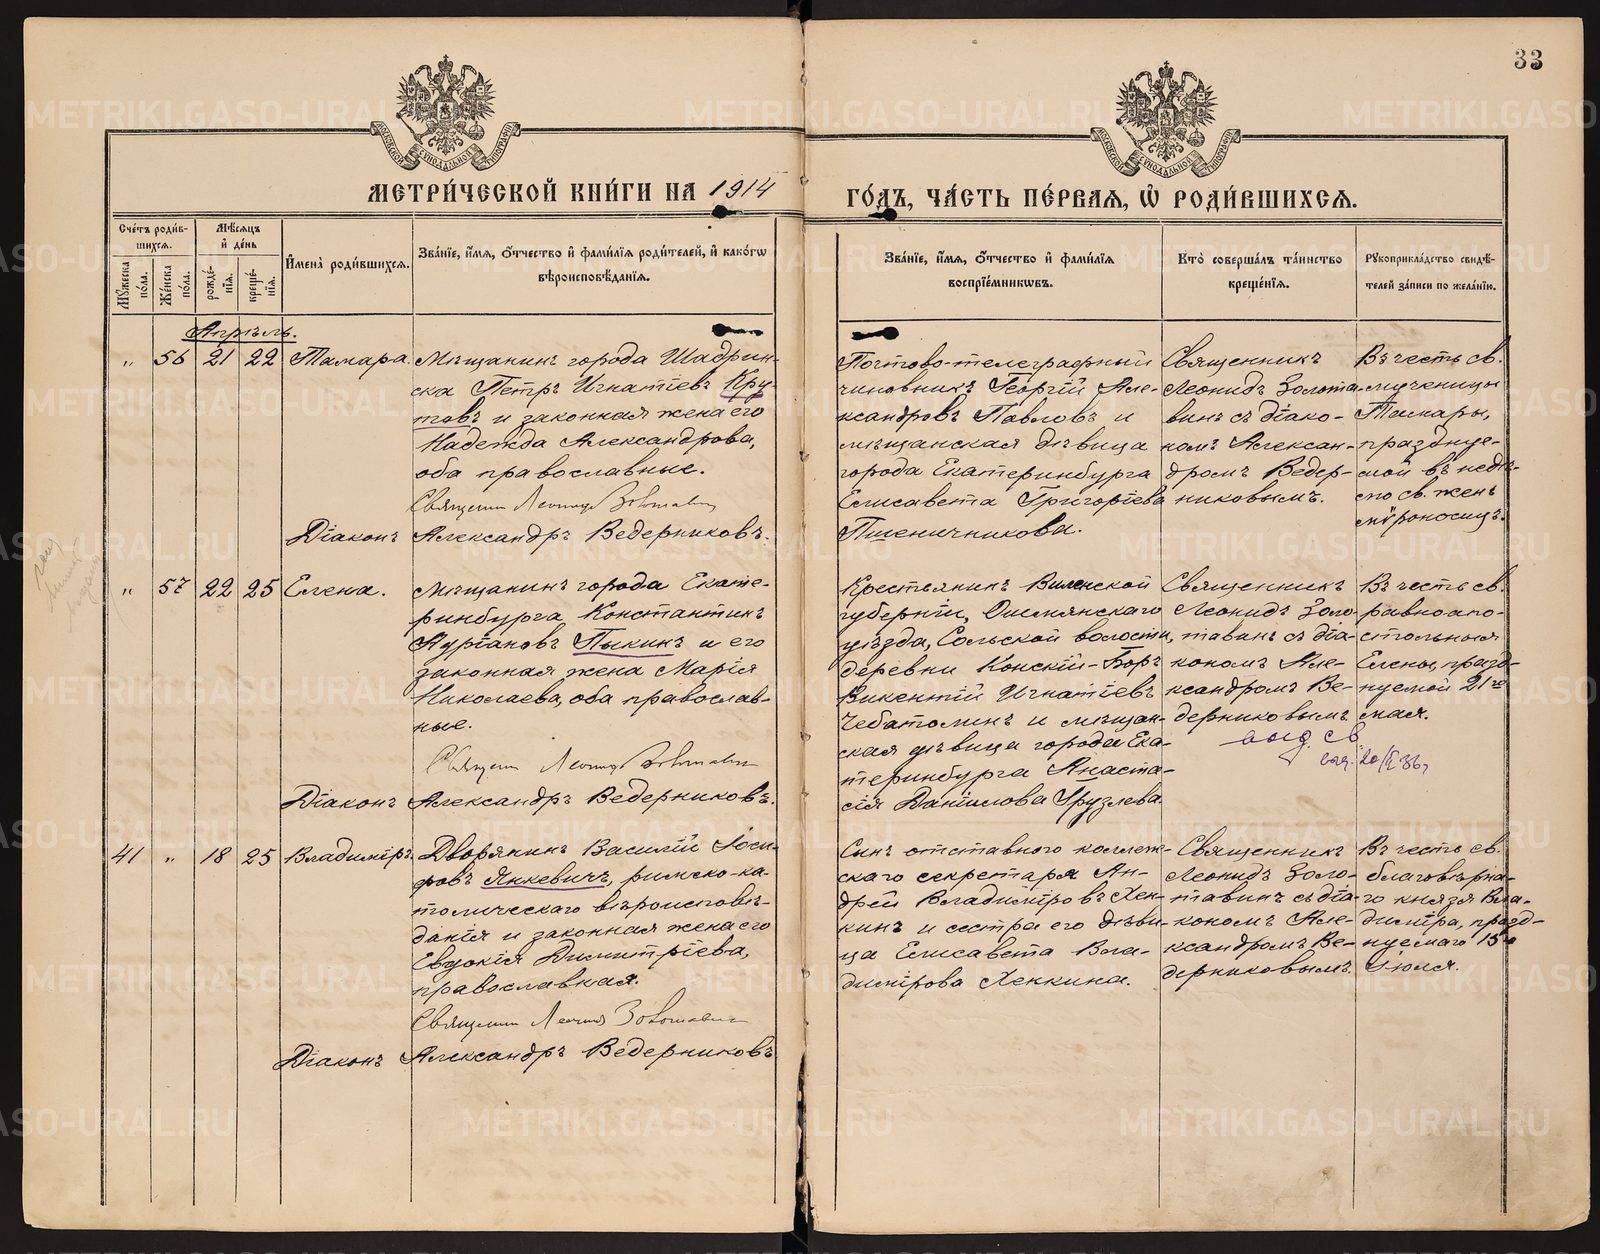 33
МЕТРИ́ЧЕСКОЙ КНИ́ГИ НА 1914 ГО́ДЪ, ЧА́СТЬ ПЕ́РВАЯ, Ѽ РОДИ́ВШИХСЯ.
Сче́тъ роди́в-
шихся.
Мѣ́сяцъ
и҆ де́нь
Мꙋ́жеска
по́ла.
Же́нска
по́ла.
рожде́-
нїѧ.
креще́-
нїѧ.
И҆мена̀ роди́вшихся.
Зва́нїе, и҆́мя, ѻ҆́тчество и҆ фами́лїя роди́телей, и҆ како́гѡ
вѣроисповѣ́данїя.
Зва́нїе, и҆́мя, ѻ҆́тчество и҆ фами́лїя
воспрїе́мникѡвъ.
Кто̀ соверша́лъ та́инство
креще́нїя.
Рꙋкоприкла́дство свидѣ́-
телей за́писи по жела́нїю.
Апрѣль.
„ 56 21 22 Тамара.
Мѣщанинъ города Шадрин-
ска Петръ Игнатіевъ Кру-
товъ и законная жена его
Надежда Александрова,
оба православные.
Священн Леонидъ Золотавин
Діаконъ Александръ Ведерниковъ.
Почтово-телеграфный
чиновникъ Георгій Але-
ксандровъ Павловъ и
мѣщанская дѣвица
города Екатеринбурга
Елисавета Григоріева
Пшеничникова.
Священникъ
Леонидъ Золота-
винъ съ діако-
номъ Алексан-
дромъ Ведер-
никовымъ.
Въ честь св.
мученицы
Тамары,
празднуе-
мой въ недѣ-
лю св. женъ
мѵроносицъ.
„ 57 22 25 Елена.
Мѣщанинъ города Екате-
ринбурга Константинъ
Лыкинъ и его
законная жена Марія
Николаева, оба православ-
ные.
Священн Леонидъ Золотавин
Діаконъ Александръ Ведерниковъ.
Крестьянинъ Виленской
губерніи, Дисненскаго
уѣзда, волости,
деревни Конскій-Боръ
Викентій Игнатіевъ
и мѣщан-
ская дѣвица города Ека-
теринбурга Анаста-
сія Даніилова Грузлева.
Священникъ
Леонидъ Золо-
тавинъ съ діа-
кономъ Але-
ксандромъ Ве-
дерниковымъ
Въ честь св.
равноапо-
стольныя
Елены, празд-
нуемой 21го
мая.
выд. св
41 „ 18 25 Владиміръ.
Дворянинъ Василій Іоси-
фовъ Янкевичъ, римско-ка-
толическаго вѣроисповѣ-
данія и законная жена его
Евдокія Димитріева,
православная.
Священн Леонид Золотавин
Діаконъ Александръ Ведерниковъ
Сынъ отставного коллеж-
скаго секретаря Ан-
дрей Владиміровъ Хен-
кинъ и сестра его дѣви-
ца Елисавета Вла-
димірова Хенкина.
Священникъ
Леонидъ Золо-
тавинъ съ діа-
кономъ Але-
ксандромъ Ве-
дерниковымъ.
Въ честь св.
благовѣрна-
го князя Вла-
димира, празд-
нуемаго 15го
іюля.